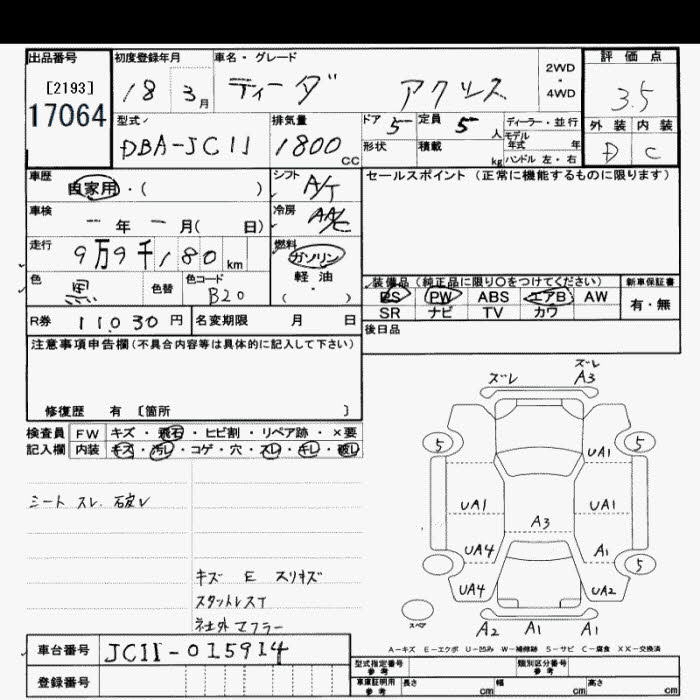 出品番号 初度登録年月 車名・グレード 2WD・4WD 評価点
[2193] 18 3月 ティーダ アクシス 3.5
17064
型式 排気量 ドア 5 定員 5人 ディーラー・並行 外装 内装
DBA-JC11 1800cc 形状 積載 kg モデル年式 年 D C
ハンドル 左・右
車歴 自家用・( ) シフト A/T セールスポイント (正常に機能するものに限ります)
車検 ー年 ー月( 日) 冷房 AAC
走行 9万9千180km 燃料 ガソリン
軽油
( )
色 黒 色替 色コード B20
装備品 (純正品に限り○をつけてください) 新車保証書
PS PW ABS エアB AW 有・無
SR ナビ TV カワ
R券 11030円 名変期限 月 日 後日品
注意事項申告欄(不具合内容等は具体的に記入して下さい)
修復歴 有 〔箇所 〕
検査員 FW キズ・飛石・ヒビ割・リペア跡・×要
記入欄 内装 キズ・汚レ・コゲ・穴・スレ・キレ・破レ
シート スレ
キズ E スリキズ
スタットレスT
社外マフラー
ズレ
ズレ A3
5 5
UA1
UA1 UA1
A3
UA4 A1
5
UA4 UA2
スペア
A2 A1 A1
A-キズ E-エクボ U-凹み W-補修跡 S-サビ C-腐食 XX-交換済
車台番号 JC11-015914
登録番号
型式指定番号 参考 類別区分番号 参考
車庫証明用 参考 長さ cm 幅 cm 高さ cm